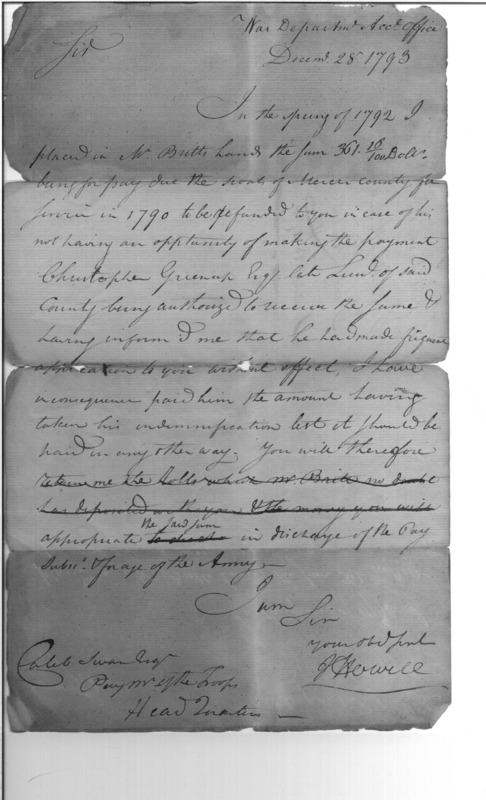 War Departmt. Acct. Office
Sir
Decemr. 28 1793
In the spring of 1792 I
placed in Mr. Britts hands the sum 361. 18/100 Dolls.
being for pay due the scouts of Mercer county for
service in 1790 to be refunded to you in case of his
not having an opportunity of making the payment
Christopher Greenup Esq late Lieut. of said
County being authorized to receive the same &
having inform'd me that he had made frequent
application to you without effect, I have
in consequence paid him the amount having
taken his indemnification lest it should be
paid in any other way. You will therefore
return me the rolls which Mr. Britt no doubt
has deposited with you & the money you will
the said sum
appropriate in discharge of the Pay
Subsce. & forage of the Army
I am
Sir
your obd servt
J Howell
Caleb Swan Esqr
Pay Mr. of the Troops
Head Quarters